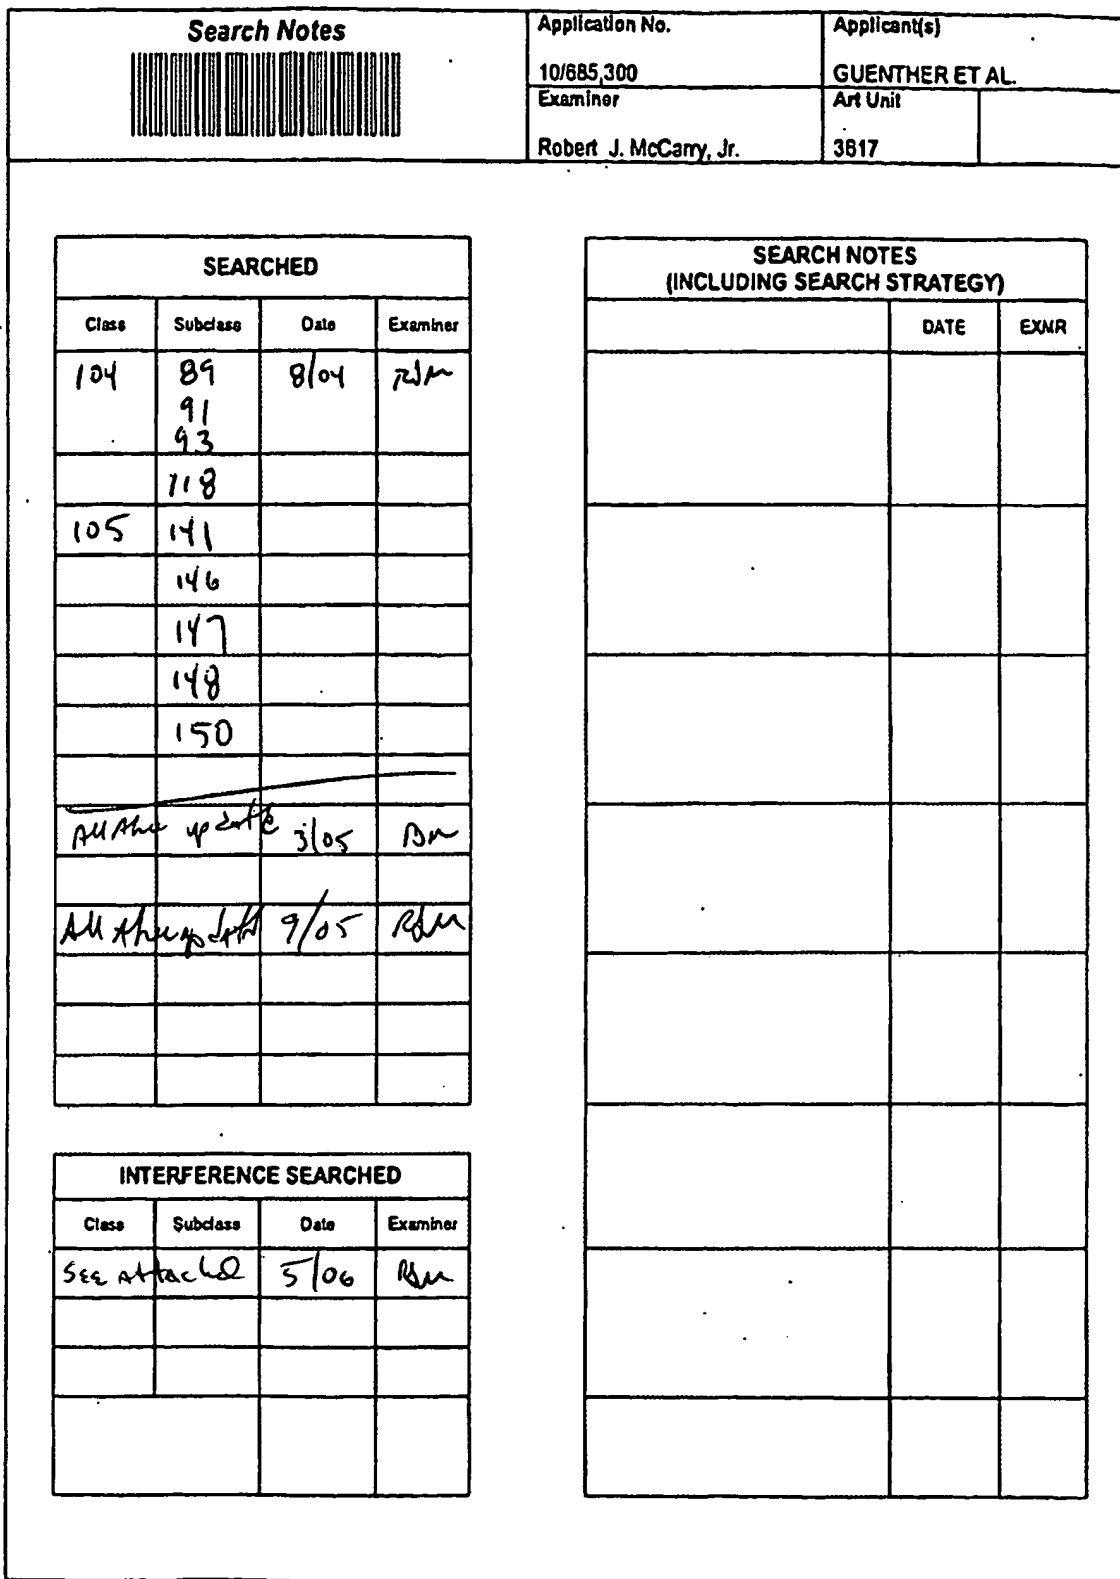 Search Notes
Application No.
Applicant(s)
10/685,300
GUENTHER ET AL.
Examiner
Art Unit
Robert J. McCarry, Jr.
3617
SEARCHED
Class Subclass Date Examiner
104 89 8/04 RJM
91
93
118
105 141
146
147
148
150
All Above update 3/05 RJM
All Above updated 9/05 RJM
INTERFERENCE SEARCHED
Class Subclass Date Examiner
See Attached 5/06 RJM
SEARCH NOTES
(INCLUDING SEARCH STRATEGY)
DATE EXMR